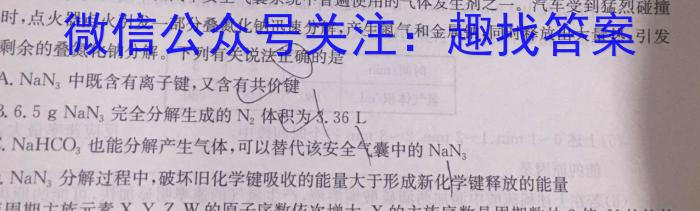 安全气囊系统中普遍使用的气体发生剂之一。汽车受到猛烈碰撞
时,点火
微信公众号关注:趣找答案
剩余的叠氮化钠分解。下列有关说法正确的是
A. NaN₃ 中既含有离子键,又含有共价键
B. 6.5 g NaN₃ 完全分解生成的 N₂ 体积为 3.36 L
C. NaHCO₃ 也能分解产生气体,可以替代该安全气囊中的 NaN₃
NaN₃ 分解过程中,破坏旧化学键吸收的能量大于形成新化学键释放的能量
周期主族元素 X、Y、Z、W 的原子序数依次增大